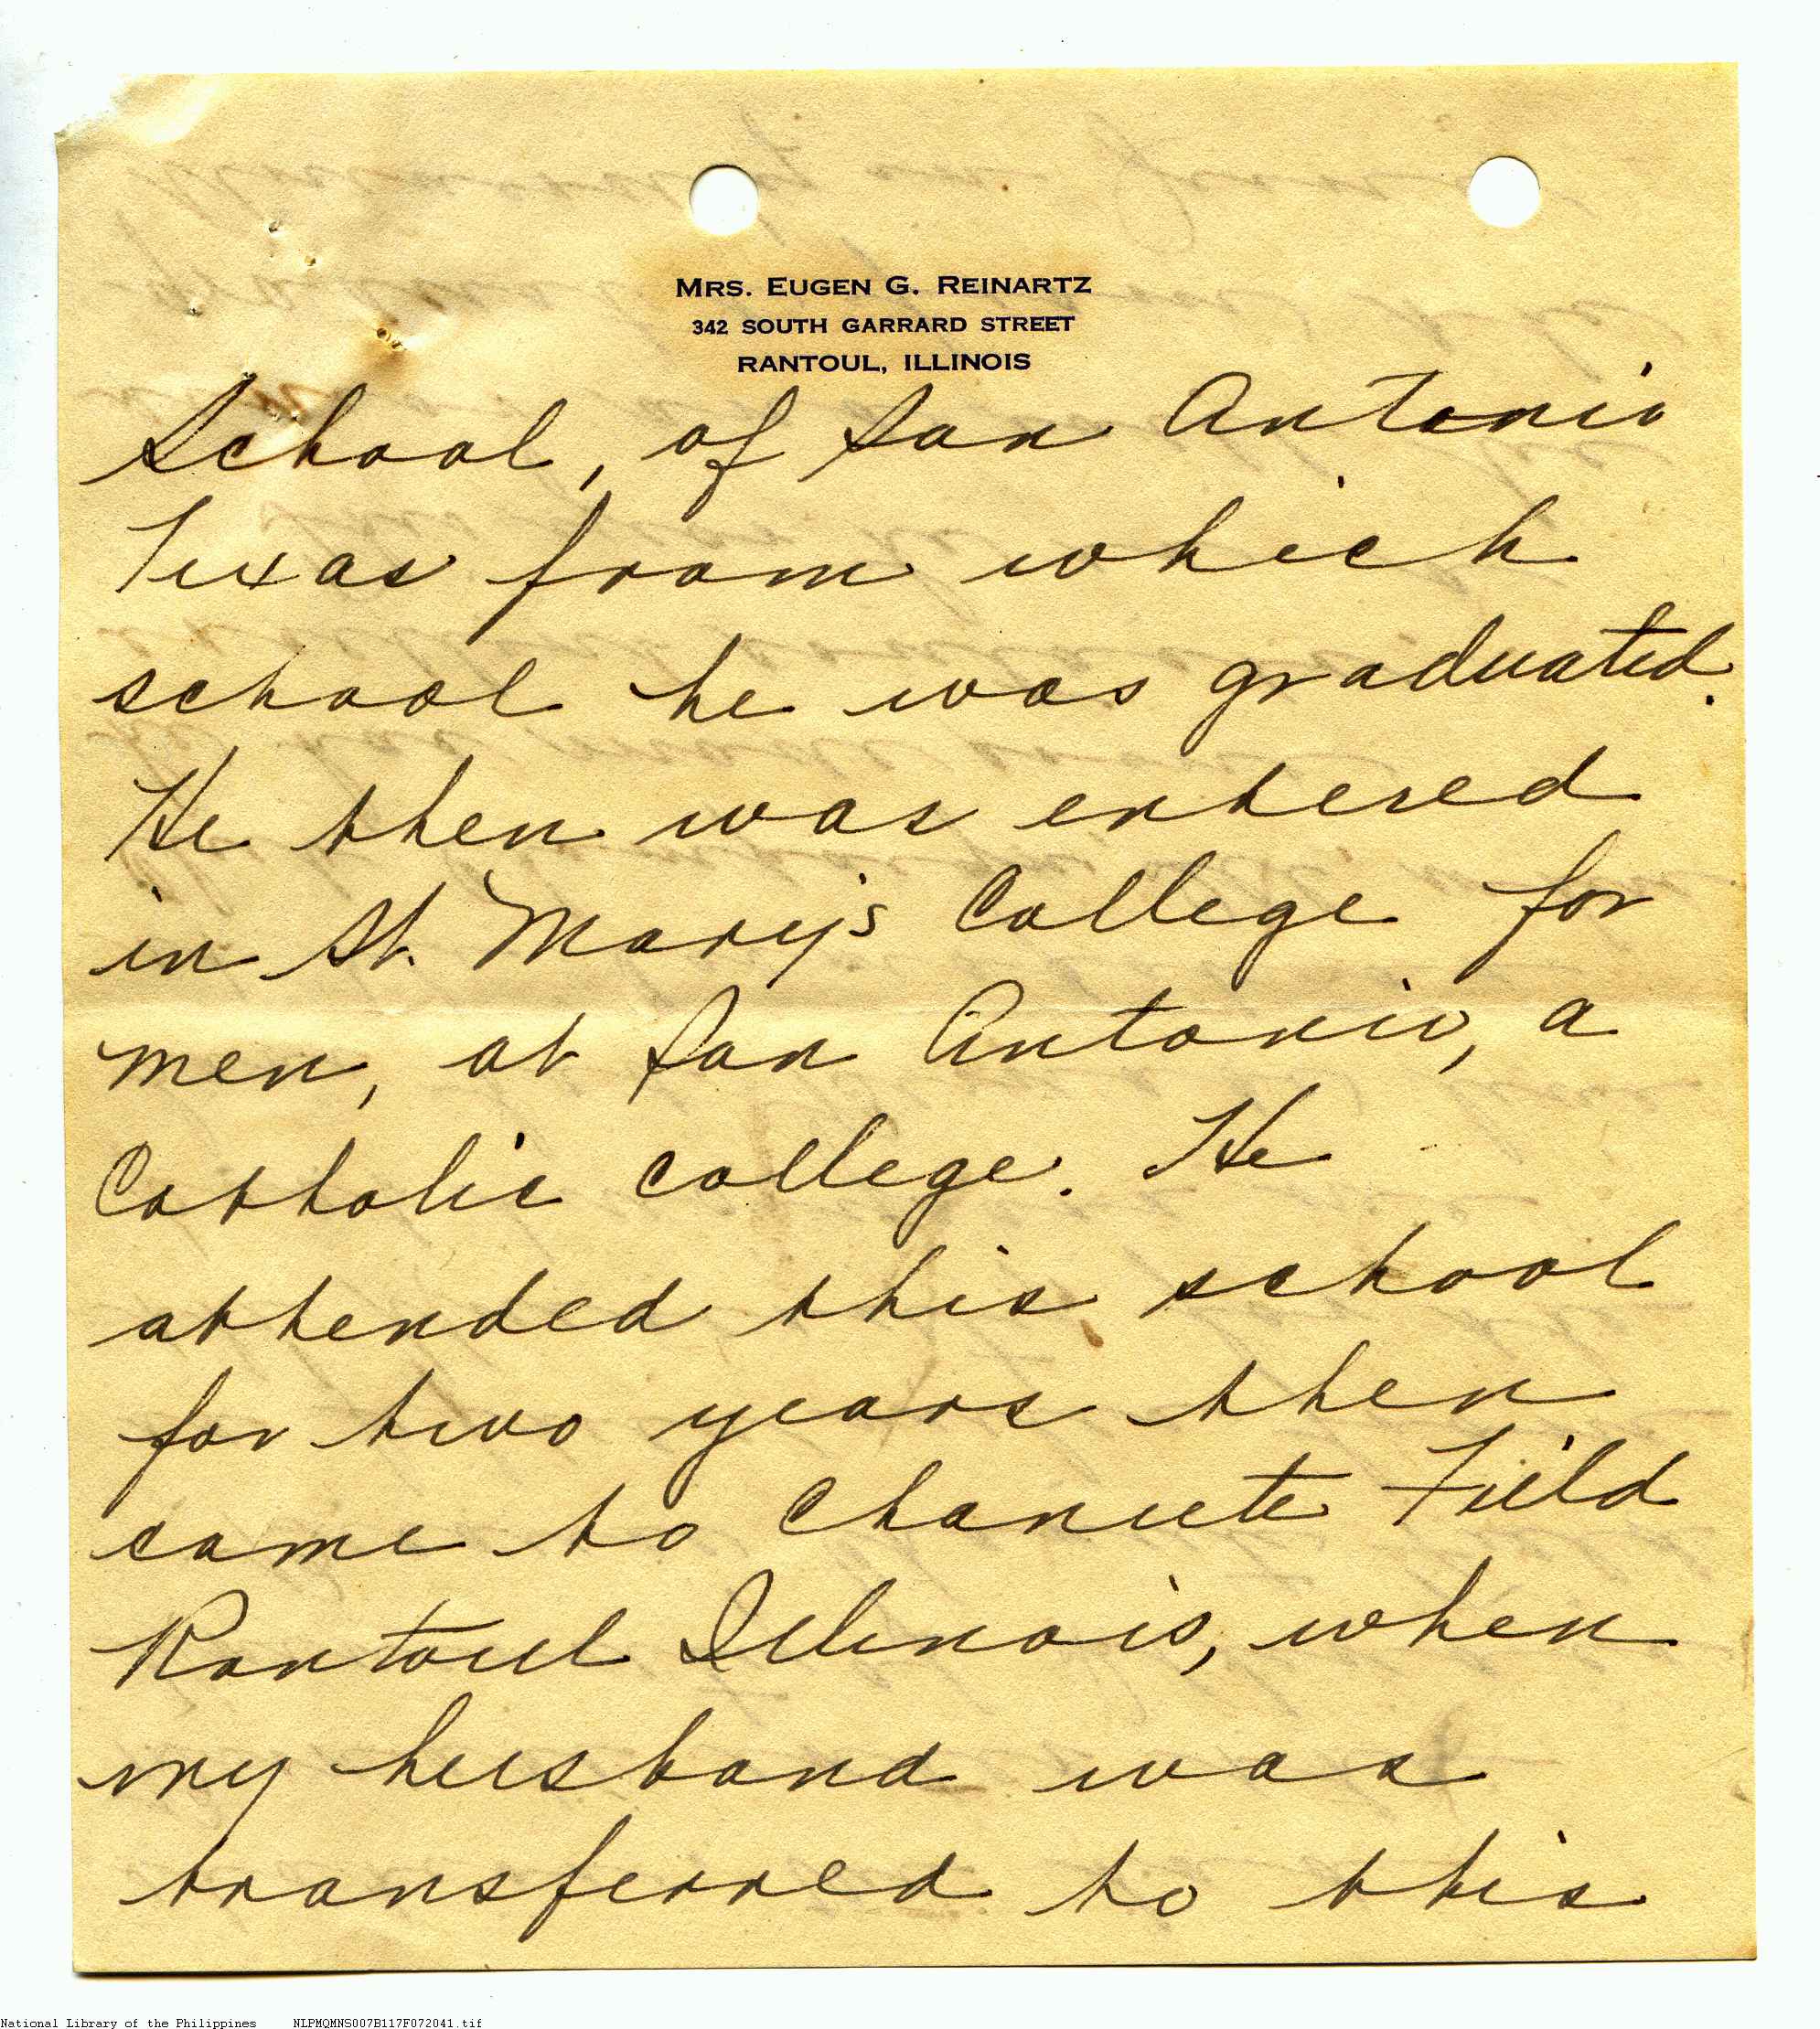 MRS. EUGEN G. REINARTZ
342 SOUTH GARRARD STREET
RANTOUL, ILLINOIS
School, of San Antonio
Texas from which
school he was graduated.
He then was entered
in St. Mary's College for
men, at San Antonio, a
Catholic college. He
attended this school
for two years then
came to Chanute Field
Rantoul Illinois, when
my husband was
transferred to this
National Library of the Philippines NLPMQMNS007B117F072041.tif